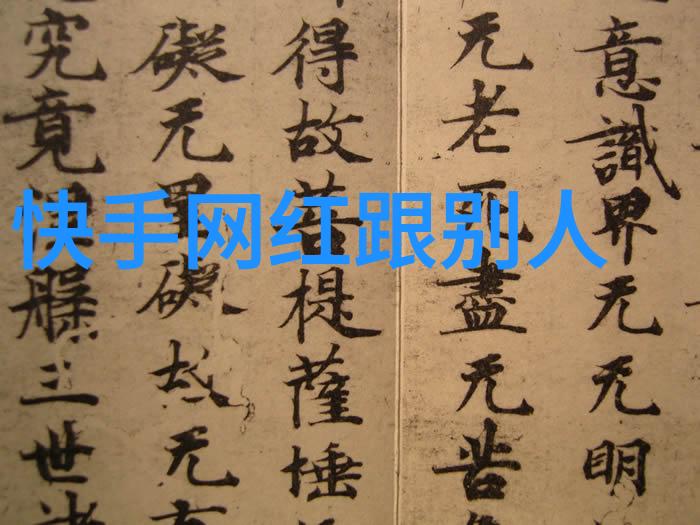 意識界无无明
无老死盡无苦
得故菩提薩埵
礙无罣礙故无有
究竟涅槃三世諸
快手网红跟别人